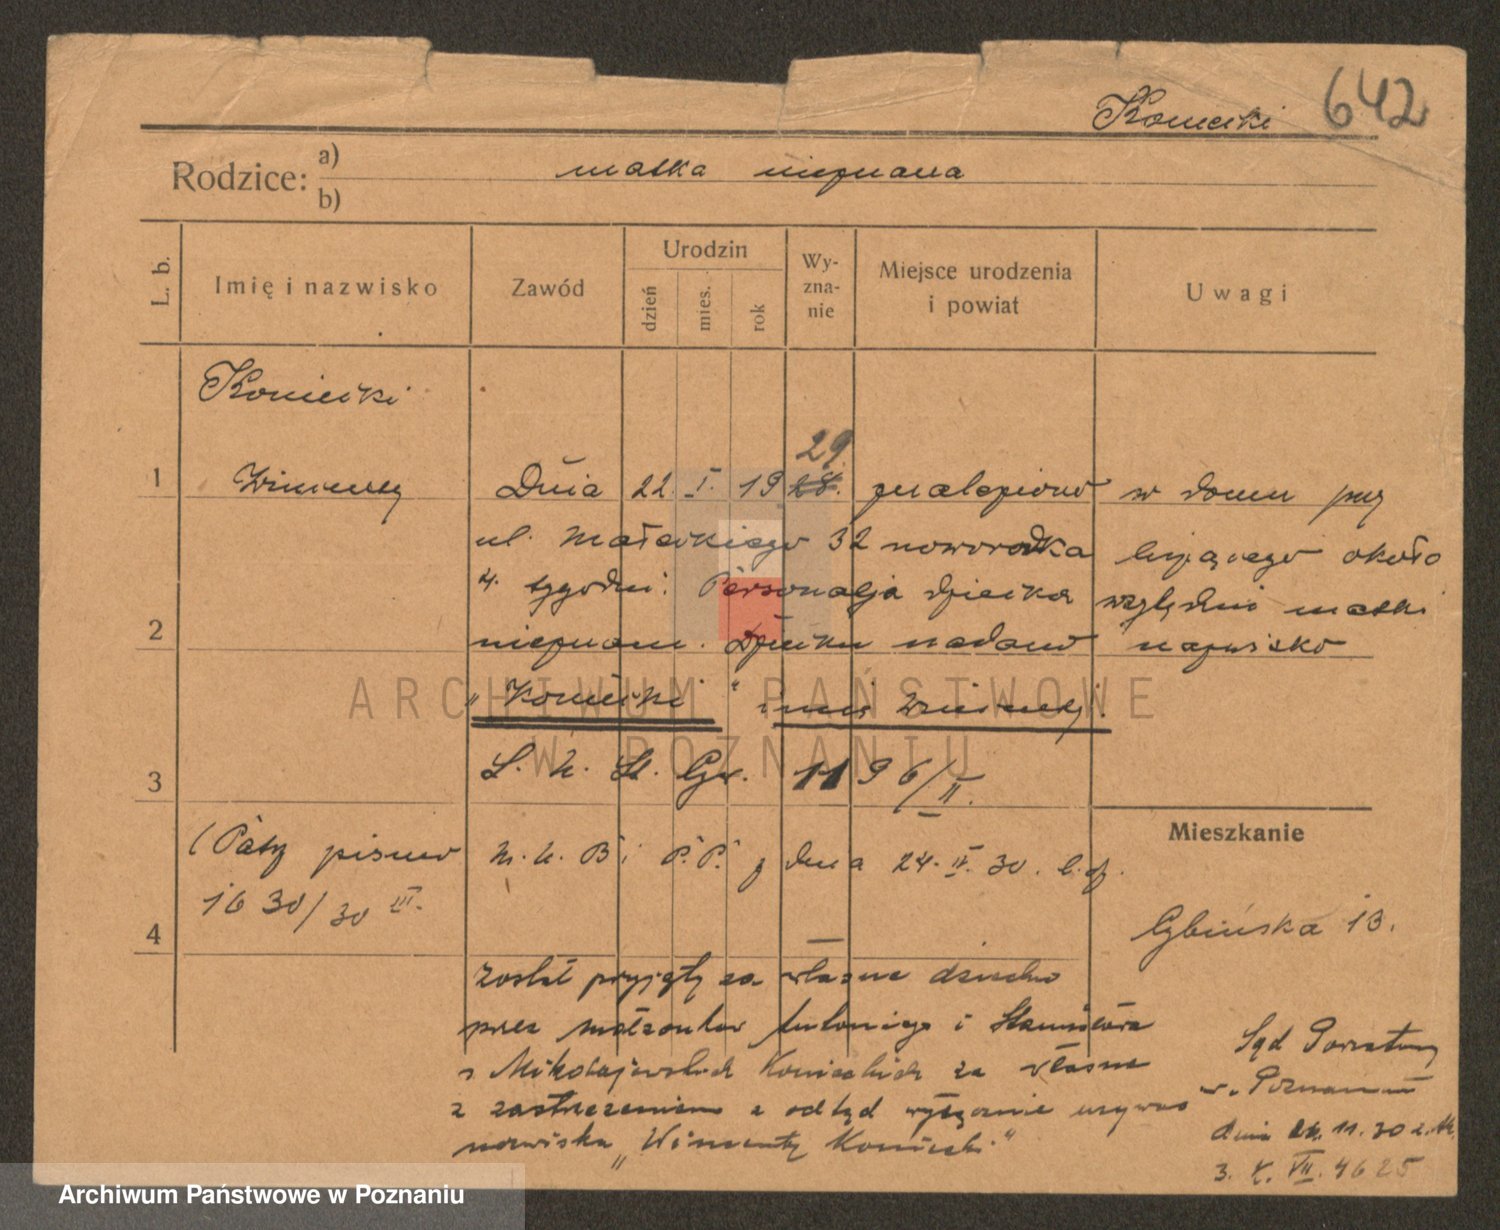 642
Koniecki
Rodzice: a) b) matka nieznana
L. b.
Imię i nazwisko
Zawód
Urodzin
dzień
mies.
rok
Wy-
zna-
nie
Miejsce urodzenia
i powiat
Uwagi
Koniecki
29
1 Wincenty Dnia 22. I. 19 28. znaleziono w domu przy
ul. Małeckiego 32 noworodka liczącego około
4. tygodni. Personalja dziecka względnie matki
2 nieznane. Dziecku nadano nazwisko
„Koniecki" imię Wincenty.
3 1196/II.
Mieszkanie
(Patrz pismo B i P.P. z dnia 24. IV. 30. l. dz.
1630/30 III.
4 Gybińska 13.
został przyjęty za własne dziecko
przez małżonków Antoniego i Stanisława
z Mikołajewskich Konieckich za własne
z zastrzeżeniem z odtąd wyłącznie używać
nazwiska „Wincenty Koniecki"
Sąd Powiatowy
w. Poznaniu
dnia 11.30
3. VII. 4625
ARCHIWUM PAŃSTWOWE
W POZNANIU
Archiwum Państwowe w Poznaniu